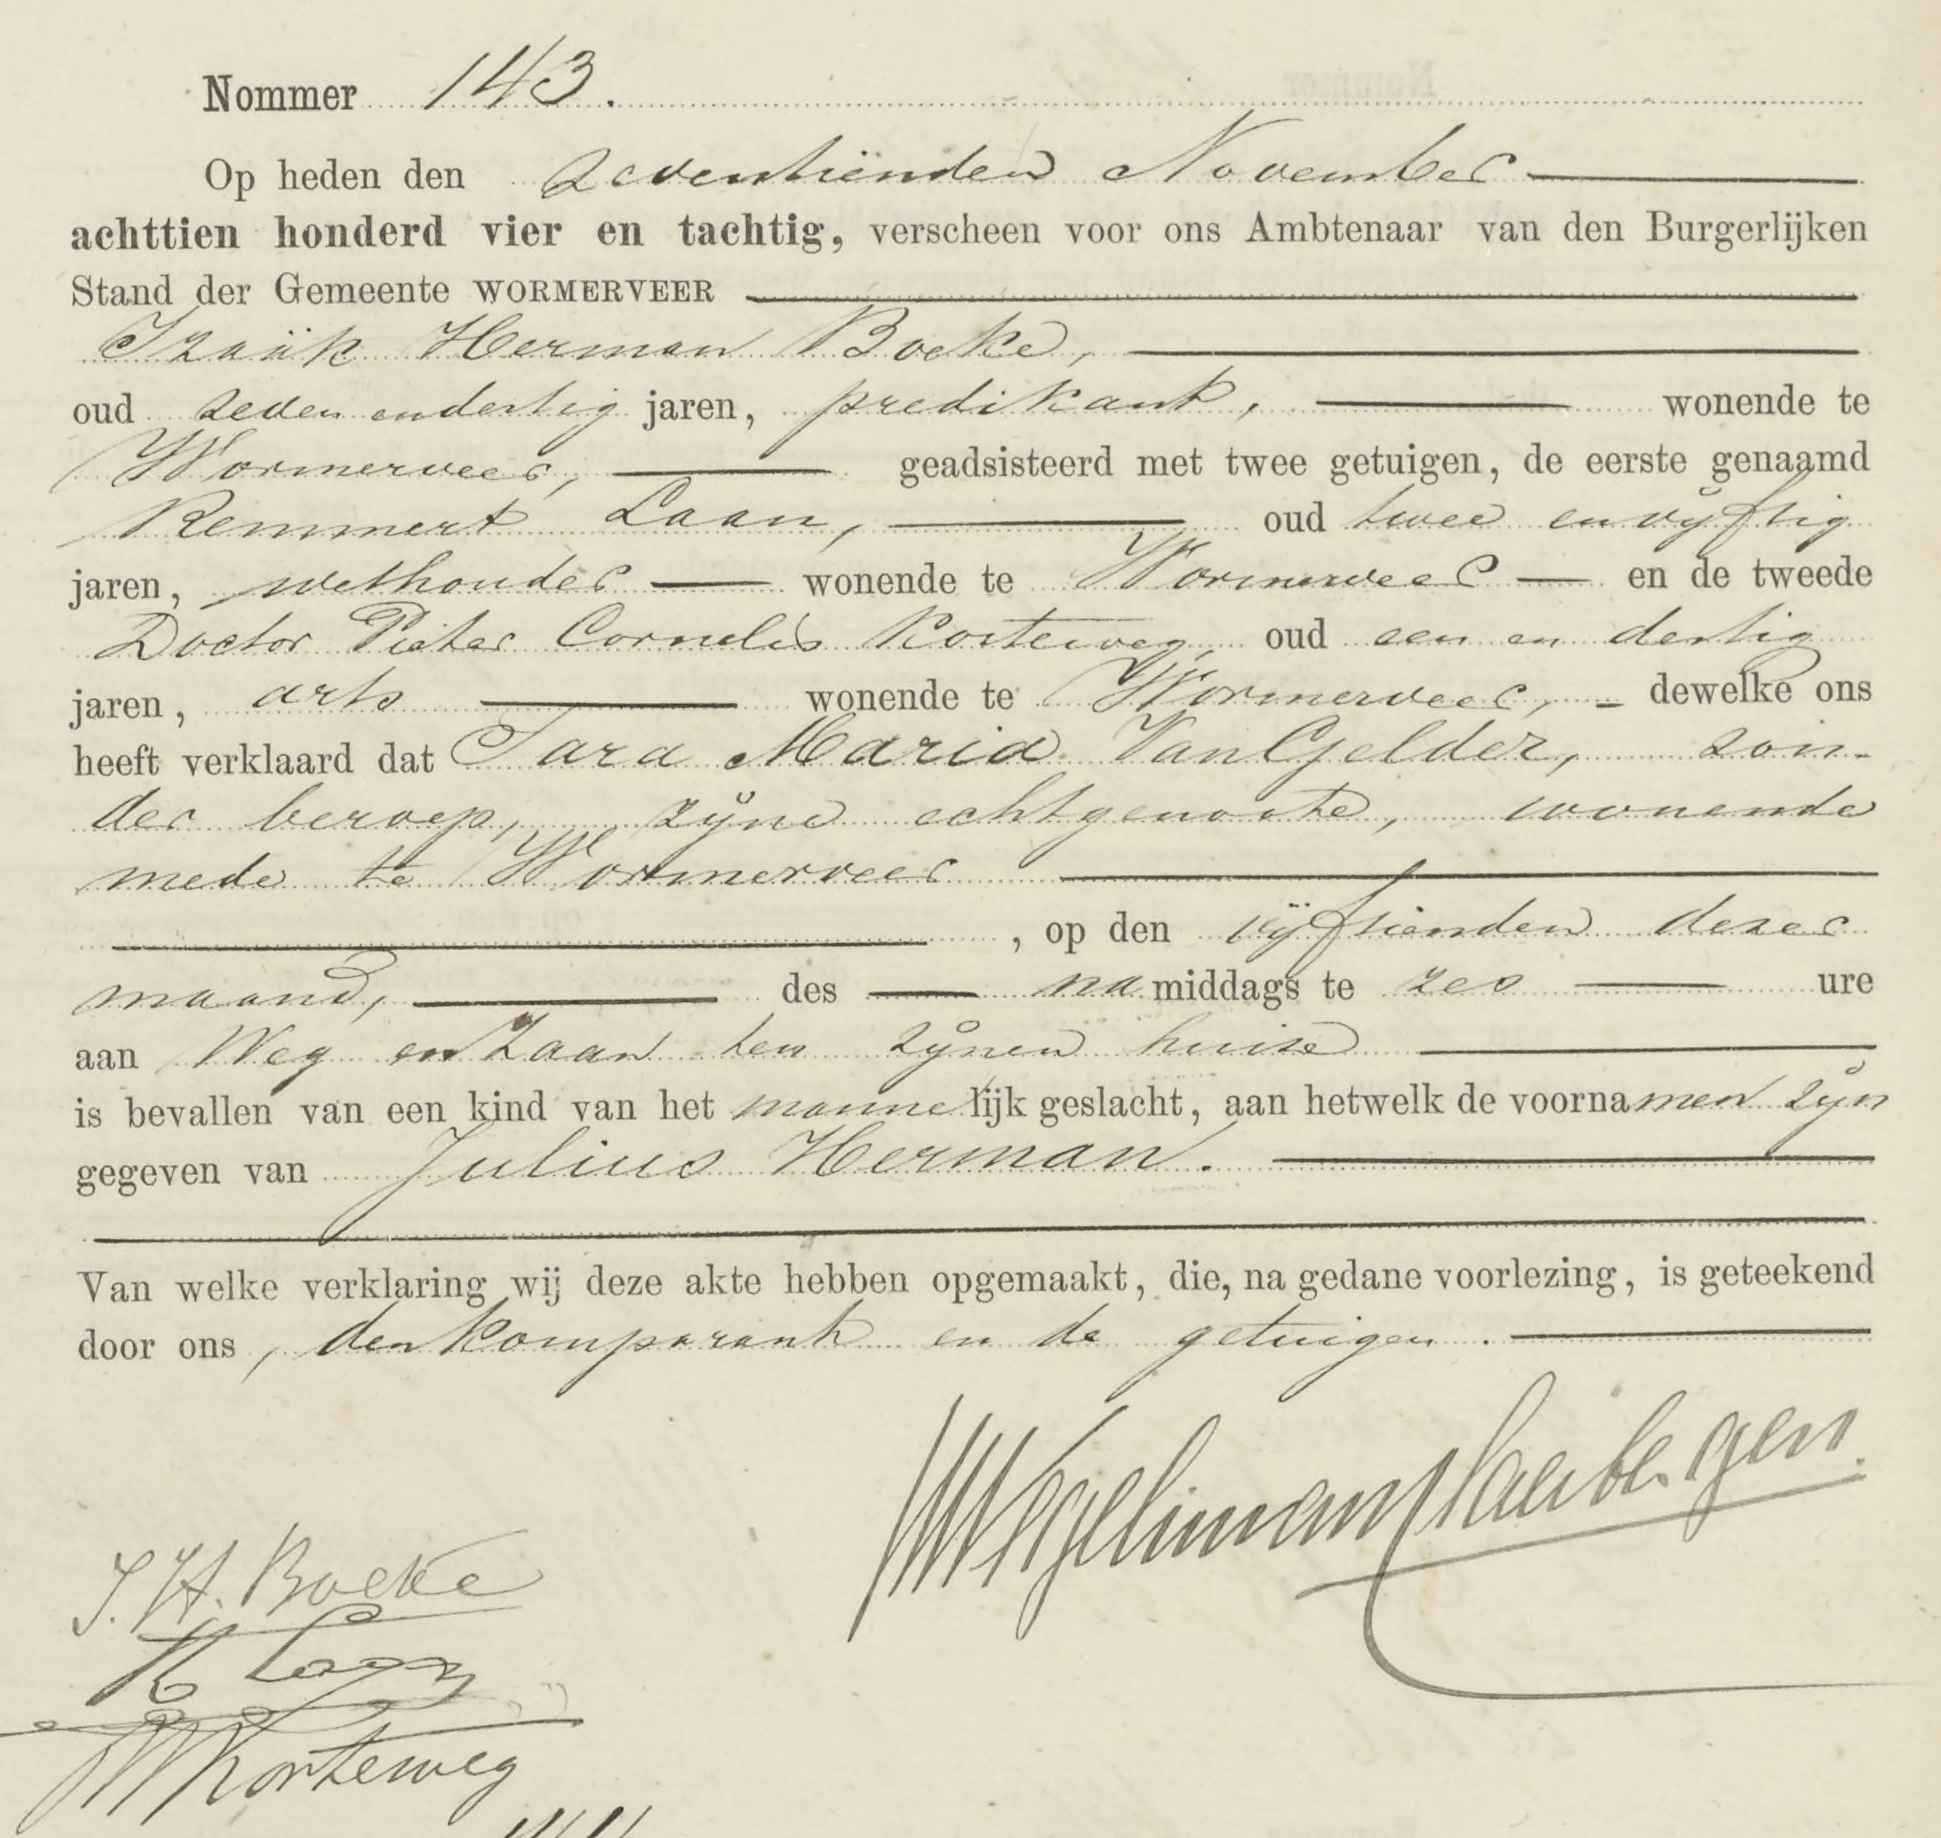 Nommer 143.
Op heden den zeventienden November
achttien honderd vier en tachtig, verscheen voor ons Ambtenaar van den Burgerlijken
Stand der Gemeente WORMERVEER
Izaäk Herman Boeke,
oud zeven endertig jaren, predikant, wonende te
Wormerveer, geadsisteerd met twee getuigen, de eerste genaamd
Remmert Laan, oud twee en vijftig
jaren, wethouder wonende te Wormerveer en de tweede
Doctor Pieter Cornelis Korteweg, oud een en dertig
jaren, arts wonende te Wormerveer, dewelke ons
heeft verklaard dat Sara Maria Van Gelder, zon-
der beroep, zijne echtgenoote, wonende
mede te Wormerveer
, op den vijftienden dezer
maand, des namiddags te zes ure
aan Weg en Zaan ten zijnen huize
is bevallen van een kind van het mannelijk geslacht, aan hetwelk de voornamen zijn
gegeven van Julius Herman.
Van welke verklaring wij deze akte hebben opgemaakt, die, na gedane voorlezing, is geteekend
door ons, den komparant en de getuigen.
I. H. Boeke
R Laan
Korteweg